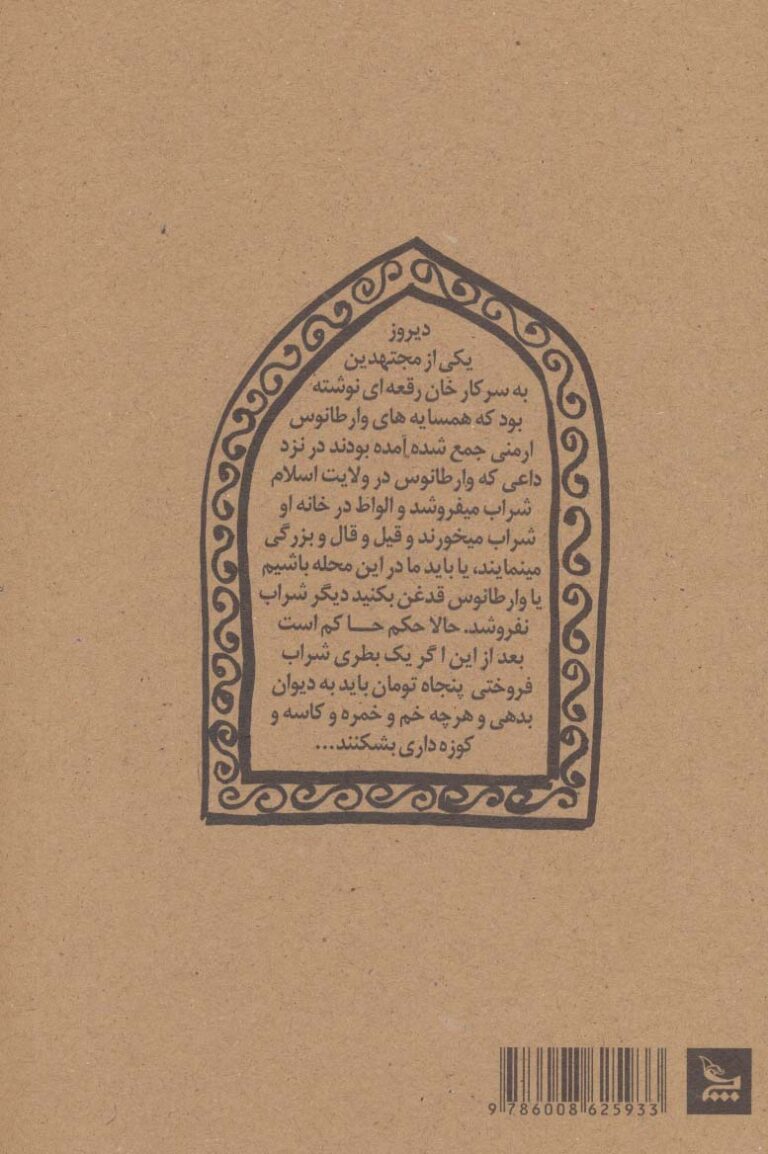 دیروز
یکی از مجتهدین
به سرکار خان رقعه ای نوشته
بود که همسایه های وارطانوس
ارمنی جمع شده آمده بودند در نزد
داعی که وارطانوس در ولایت اسلام
شراب میفروشد و الواط در خانه او
شراب میخورند و قیل و قال و بزرگی
مینمایند، یا باید ما در این محله باشیم
یا وارطانوس قدغن بکنید دیگر شراب
نفروشد. حالا حکم حـــاکم است
بعد از این اگر یک بطری شراب
فروختی پنجاه تومان باید به دیوان
بدهی و هرچه خم و خمره و کاسه و
کوزه داری بشکنند...
9 786008 625933